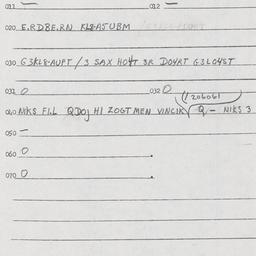 011 — 012 —
020 E.RD8E.RN KL8-A5UBM
030 G3KL8-AUPT / 3 SAX HO4T 3R DO4RT G3LO4ST
031 0 032 0
11206061
040 NIKS FI.L QDOJ HI ZOGT MEN VINCIK Q - NIKS 3
050 —
060 0
070 0